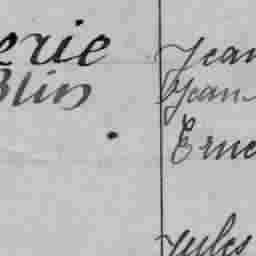 erie
Blin
Jean
Jean
Erne
Jules